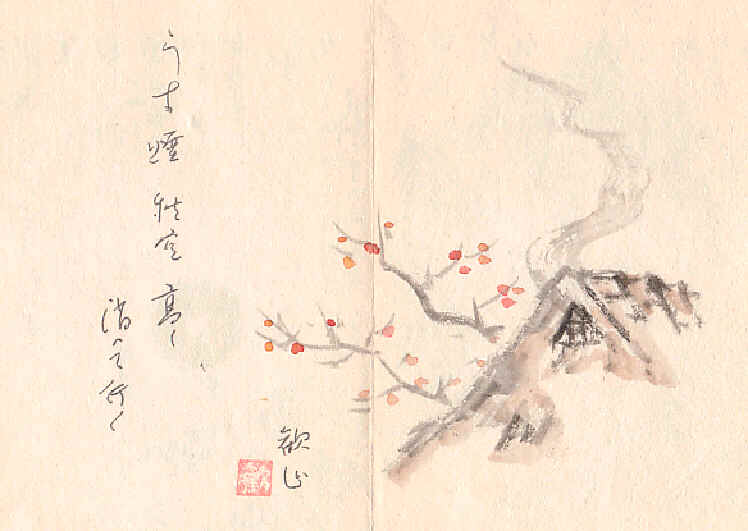 うす煙秋空高く
消えて行く
歓山